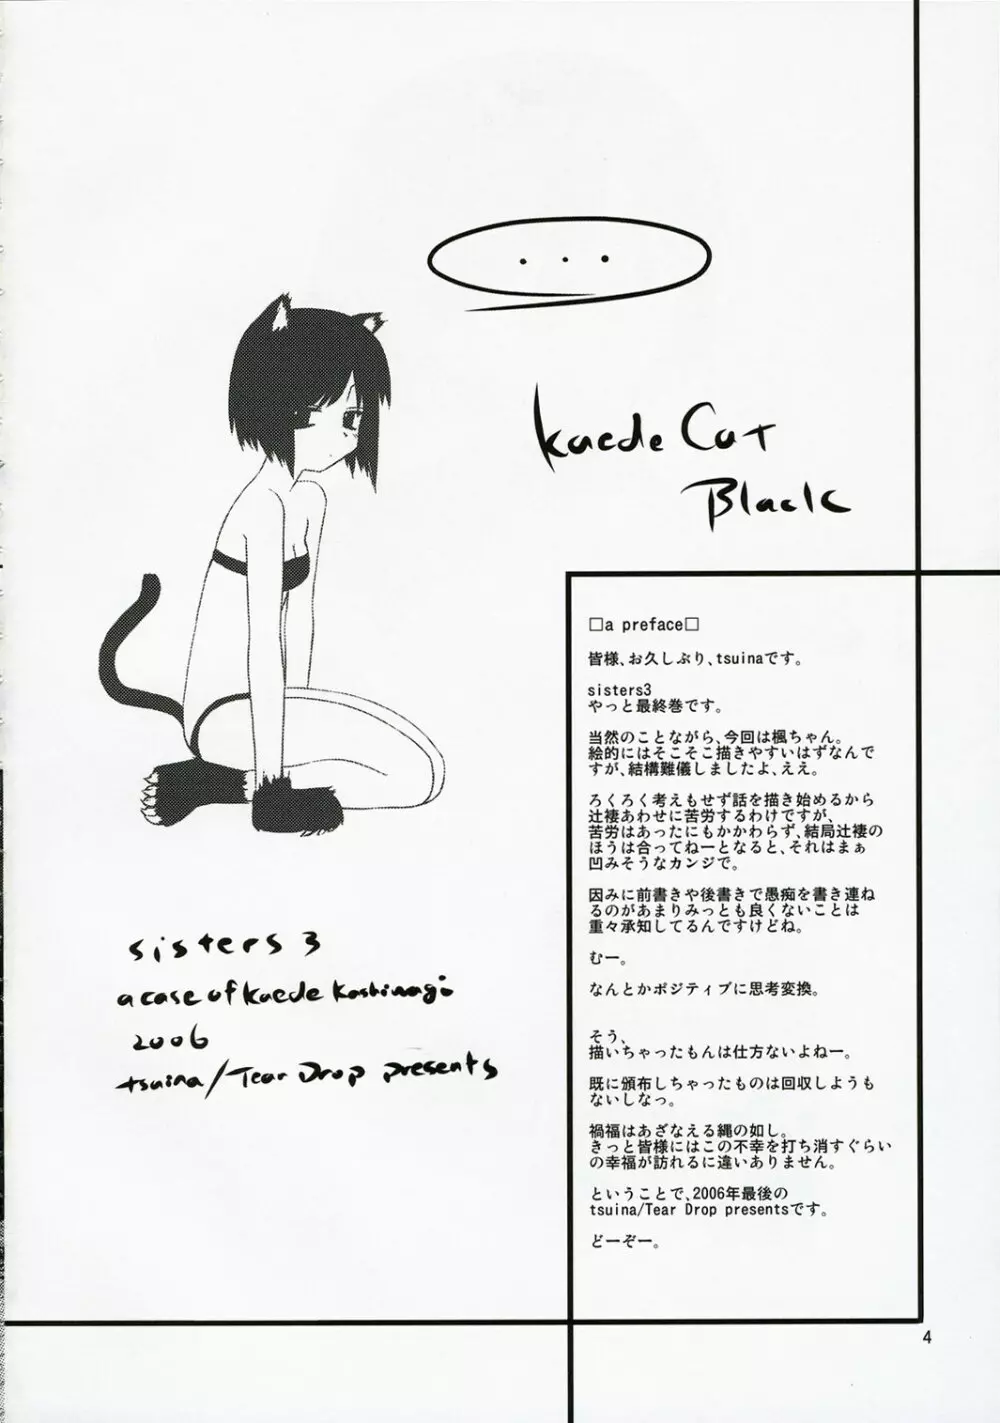 ...
kaede Cat
Black
□a preface□
皆様、お久しぶり、tsuinaです。
sisters3
やっと最終巻です。
当然のことながら、今回は楓ちゃん。
絵的にはそこそこ描きやすいはずなんで
すが、結構難儀しましたよ、ええ。
ろくろく考えもせず話を描き始めるから
辻褄あわせに苦労するわけですが、
苦労はあったにもかかわらず、結局辻褄の
ほうは合ってねーとなると、それはまぁ
凹みそうなカンジで。
因みに前書きや後書きで愚痴を書き連ね
るのがあまりみっとも良くないことは
重々承知してるんですけどね。
むー。
なんとかポジティブに思考変換。
そう、
描いちゃったもんは仕方ないよねー。
既に頒布しちゃったものは回収しようも
ないしなっ。
禍福はあざなえる縄の如し。
きっと皆様にはこの不幸を打ち消すぐらい
の幸福が訪れるに違いありません。
ということで、2006年最後の
tsuina/Tear Drop presentsです。
どーぞー。
sisters 3
a case of kaede kashinagi
2006
tsuina/Tear Drop presents
4